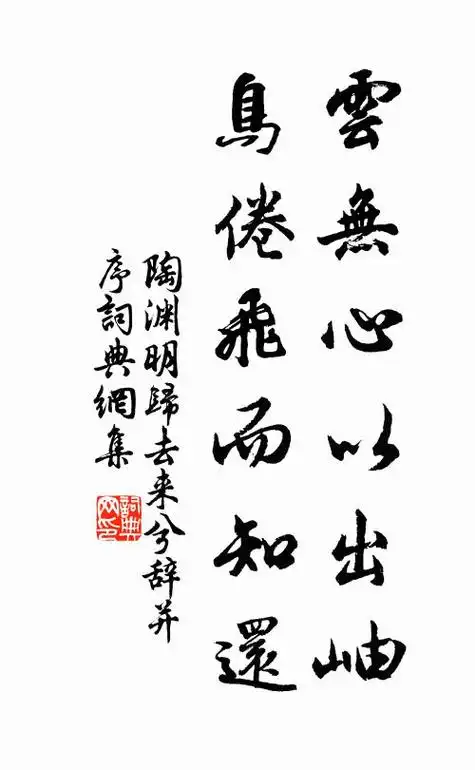 雲無心以出岫
鳥倦飛而知還
陶渊明歸去来兮辞并
序詞典網集